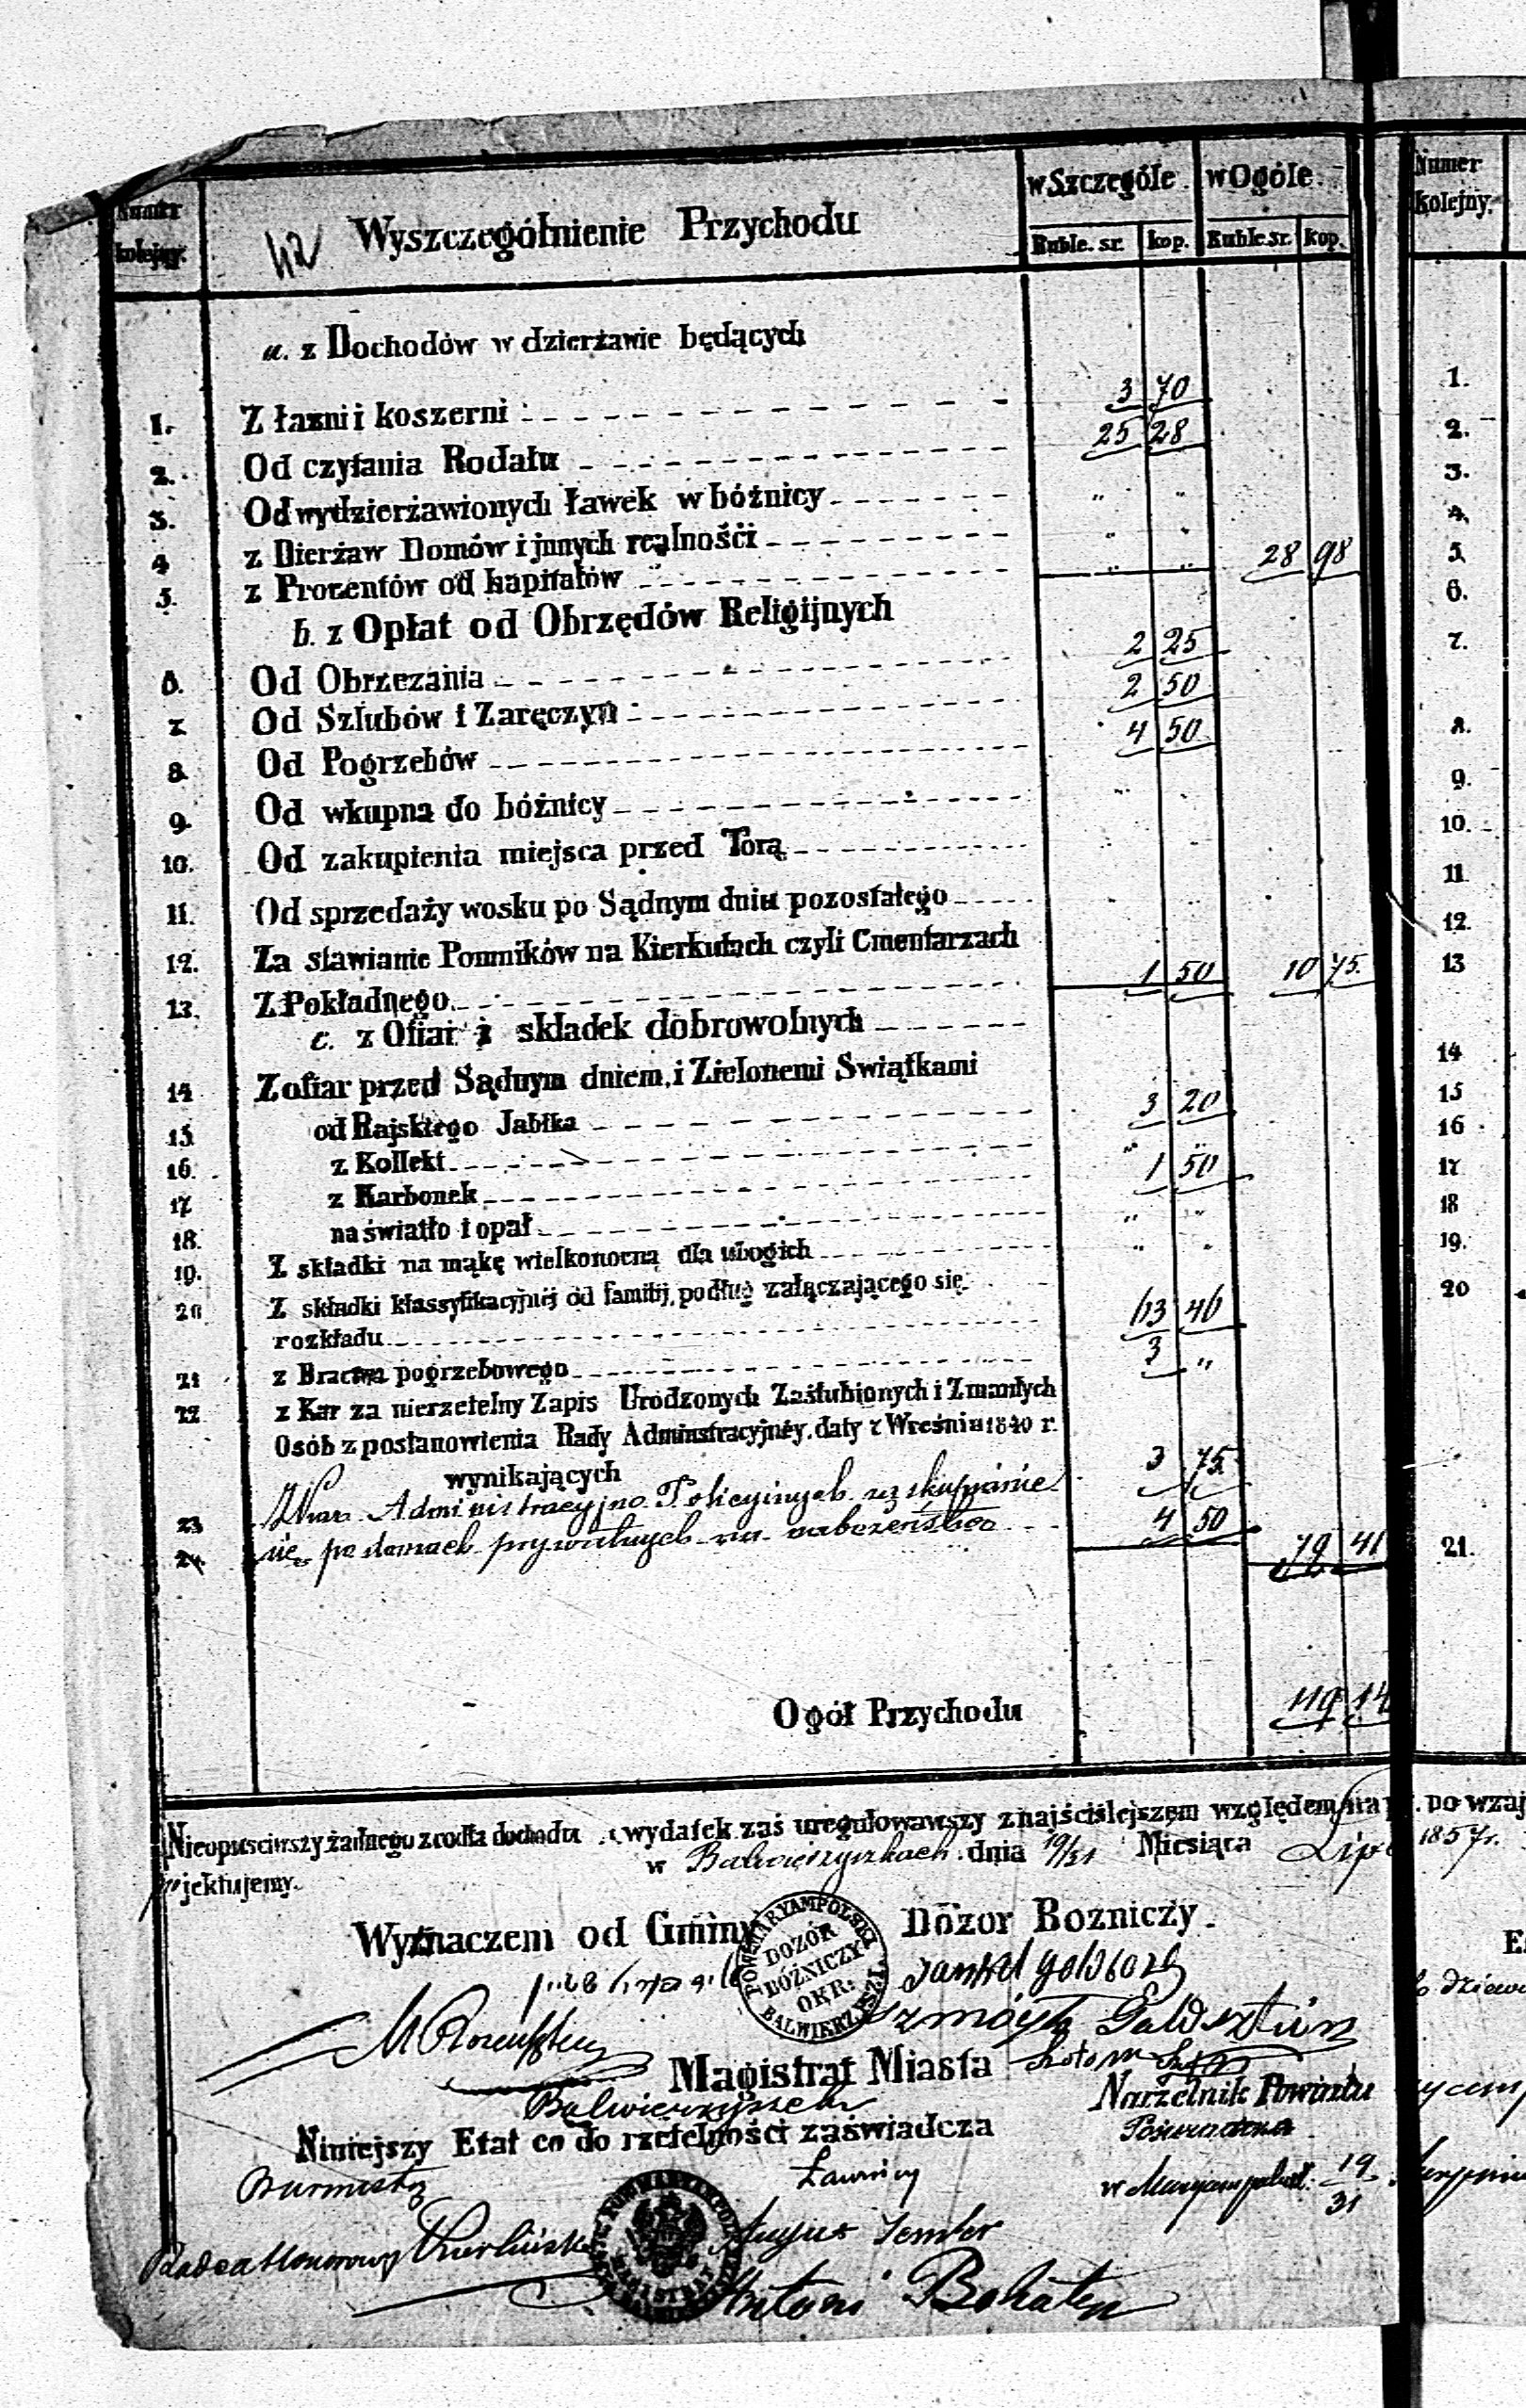 Numer kolejny.
42 Wyszczególnienie Przychodu
w Szczególe. w Ogóle.
Ruble. sr. kop. Ruble. sr. kop.
Numer kolejny.
a. z Dochodów w dzierżawie będących
1. Z łaźni i koszerni 3 70 1.
2. Od czytania Rodału 25 28 2.
3. Od wydzierżawionych ławek w bóżnicy „ „ 3.
4 z Dierżaw Domów i jnnych realnośći „ „ 4.
5. z Procentów od kapitałów „ „ 28 98 5.
b. z Opłat od Obrzędów Religijnych
6. Od Obrzezania 2 25 6.
7. Od Szlubów i Zaręczyn 2 50 7.
8. Od Pogrzebów 4 50 8.
9. Od wkupna do bóżnicy „ „ 9.
10. Od zakupienia miejsca przed Torą „ „ 10.
11. Od sprzedaży wosku po Sądnym dniu pozostałego „ „ 11
12. Za stawianie Pomników na Kierkutach czyli Cmentarzach „ „ 12.
13. Z Pokładnego 1 50 10 75. 13
c. z Ofiar i składek dobrowolnych
14 Z ofiar przed Sądnym dniem, i Zielonemi Swiątkami 14
15 od Rajskiego Jabłka 3 20 15
16. z Kollekt „ „ 16
17. z Karbonek 1 50 17
18. na światło i opał „ „ 18
19. Z składki na mąkę wielkonocną dla ubogich „ „ 19.
20 Z składki klassyfikacyjnéj od familij, podług załączającego się 20
rozkładu 63 46
21 z Bractwa pogrzebowego 3 „
22 z Kar za nierzetelny Zapis Urodzonych Zaślubionych i Zmarłych
Osób z postanowienia Rady Adminstracyjnéy. daty z Wreśnia 1840 r.
wynikających 3 75.
23 Z kar Administracyjno Policyjnych za skupianie
24. się po domach prywatnych na nabożeństwo 4 50 79 41 21.
Ogół Przychodu 119 14
Nieopusciwszy żadnego zrodła dochodu wydatek zaś uregulowawszy z najściślejszem względem na po wzaj
jektujemy. w dnia 19/31 Miesiąca 1857 r.
Wyznaczem od Gminy Dózor Bozniczy.
POW: MARYAMPOLSKI
DOZÓR
BÓŻNICZY
OKR:
Magistrat Miasta
Narzelnik Powiatu
Niniejszy Etat co do rzetelności zaświadcza
Burmistrz Ławnicy 19/31
Radca Honorowy
Antoni